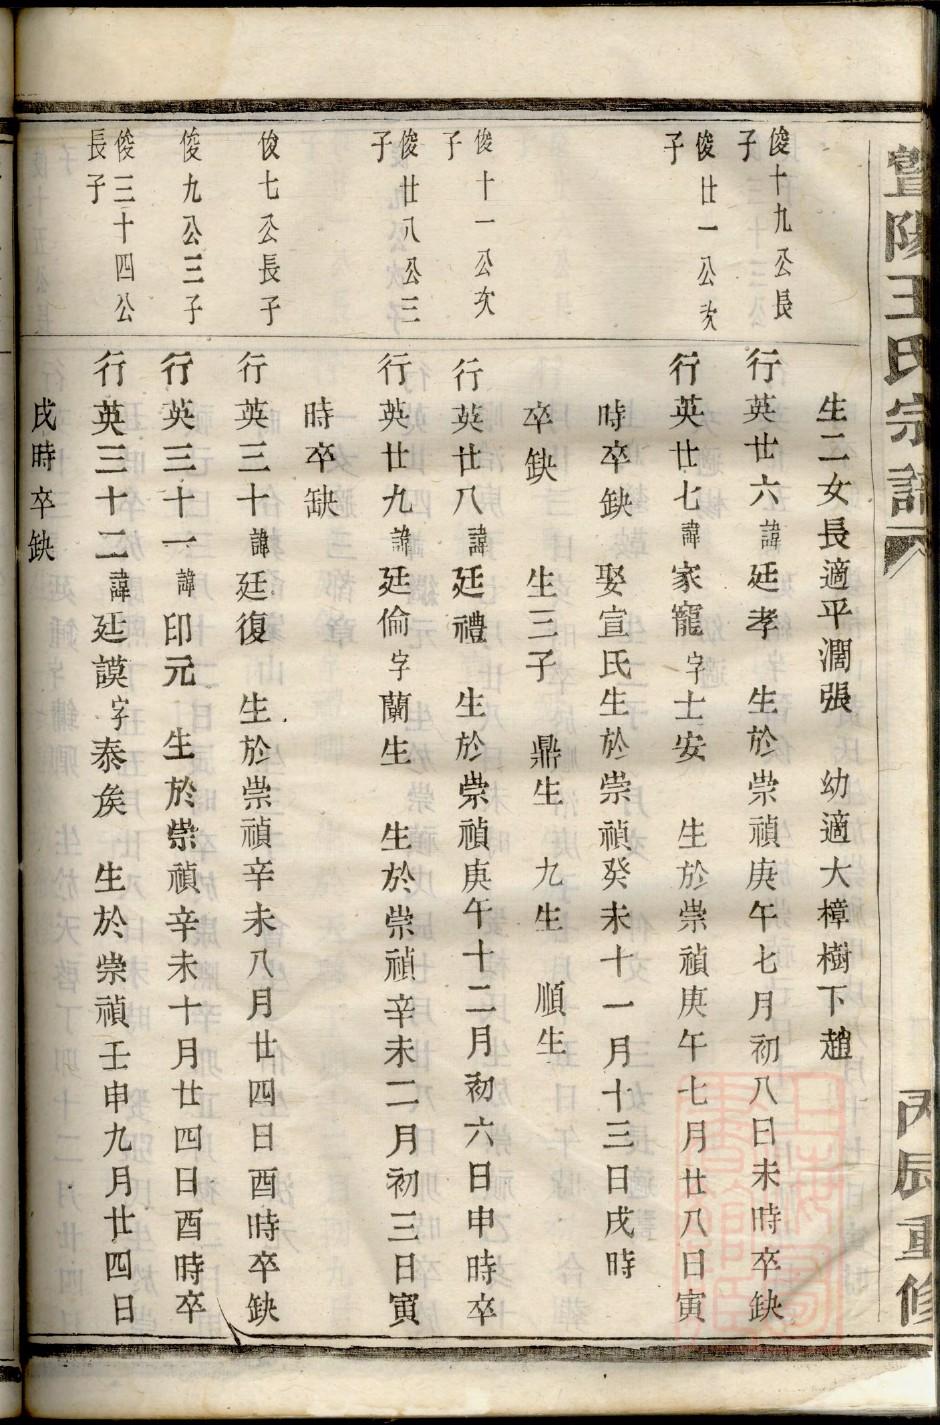 暨陽王氏宗譜
丙辰重修
生二女長適平濶張 幼適大樟樹下趙
俊十九公長子
行英廿六諱廷孝 生於崇禎庚午七月初八日未時卒缺
俊廿一公次子
行英廿七諱家寵字士安 生於崇禎庚午七月廿八日寅
時卒缺 娶宣氏生於崇禎癸未十一月十三日戌時
卒缺 生三子 鼎生 九生 順生
俊十一公次子
行英廿八諱廷禮 生於崇禎庚午十二月初六日申時卒
俊廿八公三子
行英廿九諱廷倫字蘭生 生於崇禎辛未二月初三日寅
時卒缺
俊七公長子
行英三十諱廷復 生於崇禎辛未八月廿四日酉時卒缺
俊九公三子
行英三十一諱印元 生於崇禎辛未十月廿四日酉時卒
俊三十四公長子
行英三十二諱廷謨字泰矦 生於崇禎壬申九月廿四日
戌時卒缺